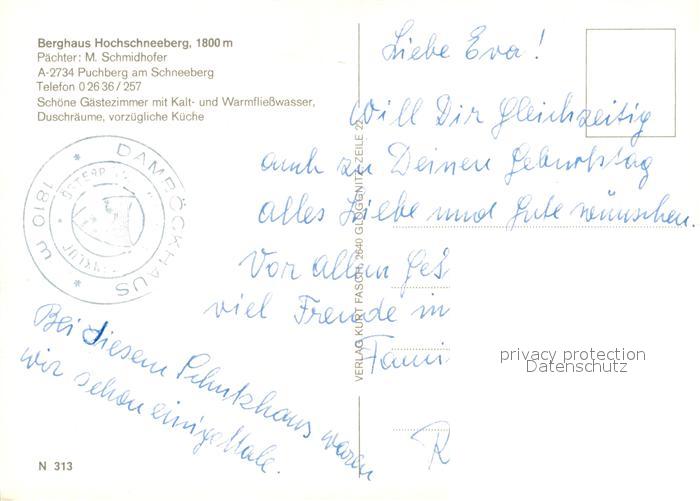 Berghaus Hochschneeberg, 1800 m
Pächter: M. Schmidhofer
A-2734 Puchberg am Schneeberg
Telefon 0 26 36 / 257
Schöne Gästezimmer mit Kalt- und Warmfließwasser,
Duschräume, vorzügliche Küche
DAMBÖCKHAUS
1810 m
Liebe Eva!
Will Dir Gleichzeitig
auch zu Deinen Geburtstag
alles Liebe und Gute wünschen.
Vor allem Ges
viel Freude in
Fami
R
Bei diesem Schutzhaus waren
wir schon einige Male.
VERLAG KURT FASCH, 2640 GLOGGNITZ, ZEILE 22
privacy protection
Datenschutz
N 313